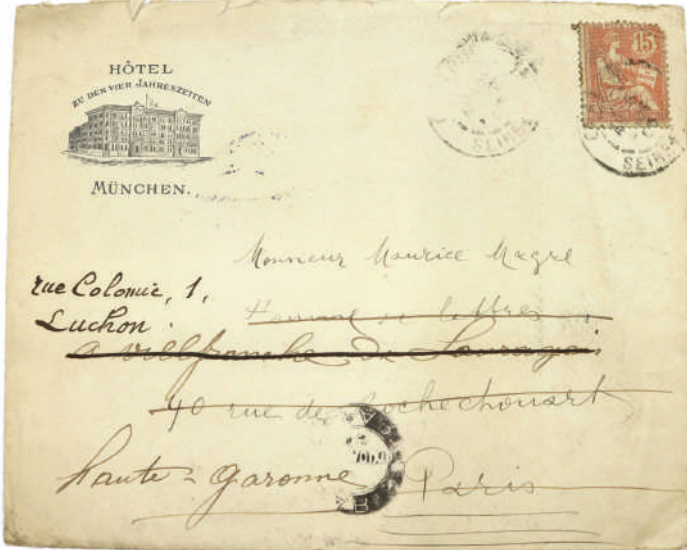 HÔTEL
ZU DEN VIER JAHRESZEITEN
MÜNCHEN.
15
SEINE
SEINE
Monsieur Maurice Magre
rue Colomic, 1,
Luchon
Homme de lettres
a villefranche de Lauragais
40 rue de Rochechouart
Haute-Garonne
Paris